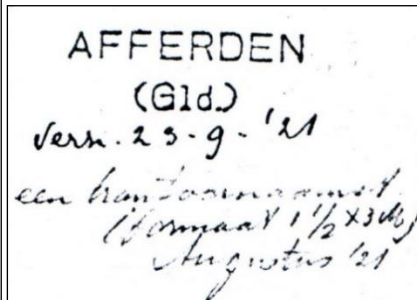 AFFERDEN
(Gld.)
Verz. 23-9-'21
een kantoornaamst.
(formaat 1 1/2 x 3 M)
Augustus '21